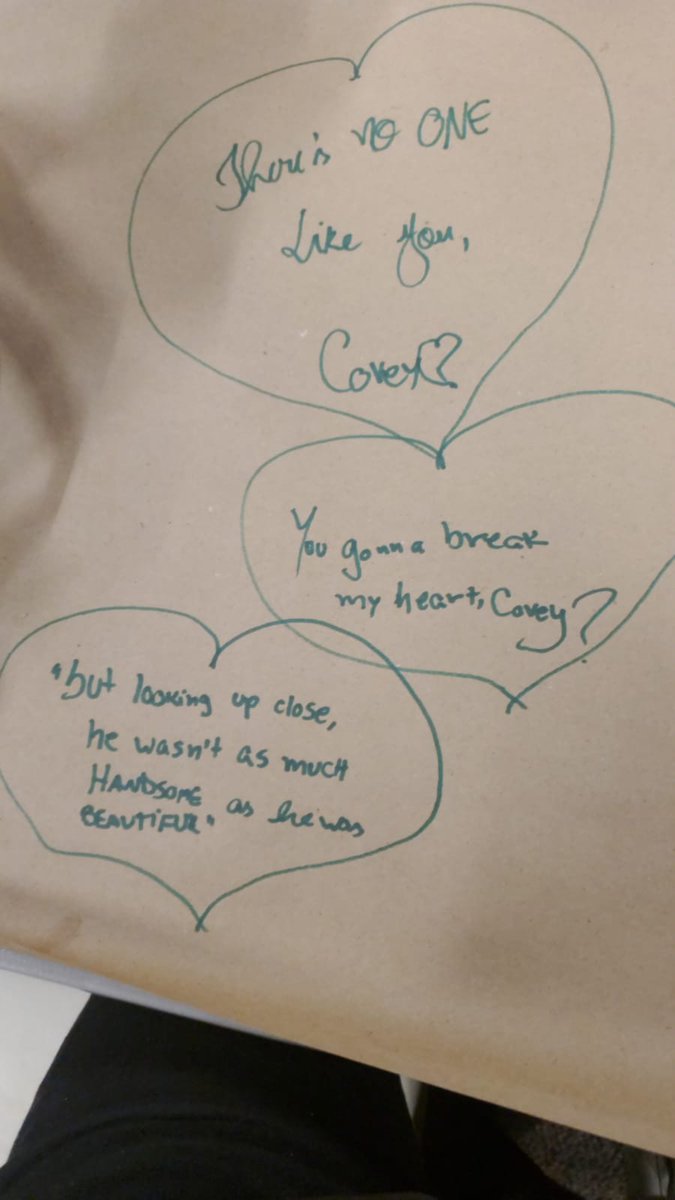 There is no ONE
Like you,
Covey?
You gonna break
my heart, Covey?
"but looking up close,
he wasn't as much
HANDSOME as he was
BEAUTIFUL"